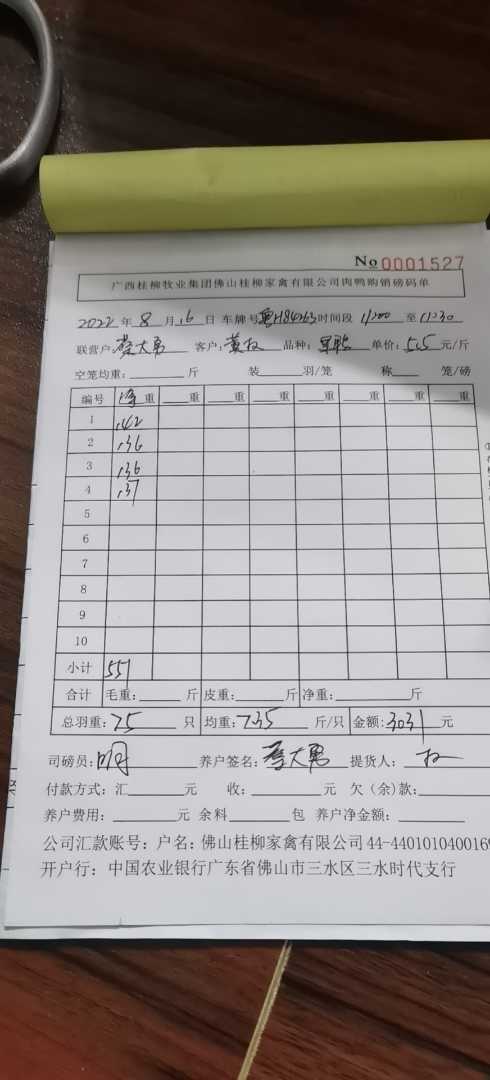 No 0001527
广西桂柳牧业集团佛山桂柳家禽有限公司肉鸭购销磅码单
2022 年 8 月 16 日 车牌号 时间段 11:00 至 11:30
联营户: 大勇 客户: 黄 品种: 单价: 5.5 元/斤
空笼均重: 斤 装 羽/笼 称 笼/磅
编号 净重 重 重 重 重 重 重
1 142
2 136
3 136
4 137
5
6
7
8
9
10
小计 551
合计 毛重: 斤 皮重: 斤 净重: 斤
总羽重: 75 只 均重: 7.35 斤/只 金额: 3031 元
司磅员: 养户签名: 大勇 提货人:
付款方式: 汇 元 收: 元 欠(余)款:
养户费用: 元 余料 包 养户净金额:
公司汇款账号: 户名: 佛山桂柳家禽有限公司 44-4401010400169
开户行: 中国农业银行广东省佛山市三水区三水时代支行